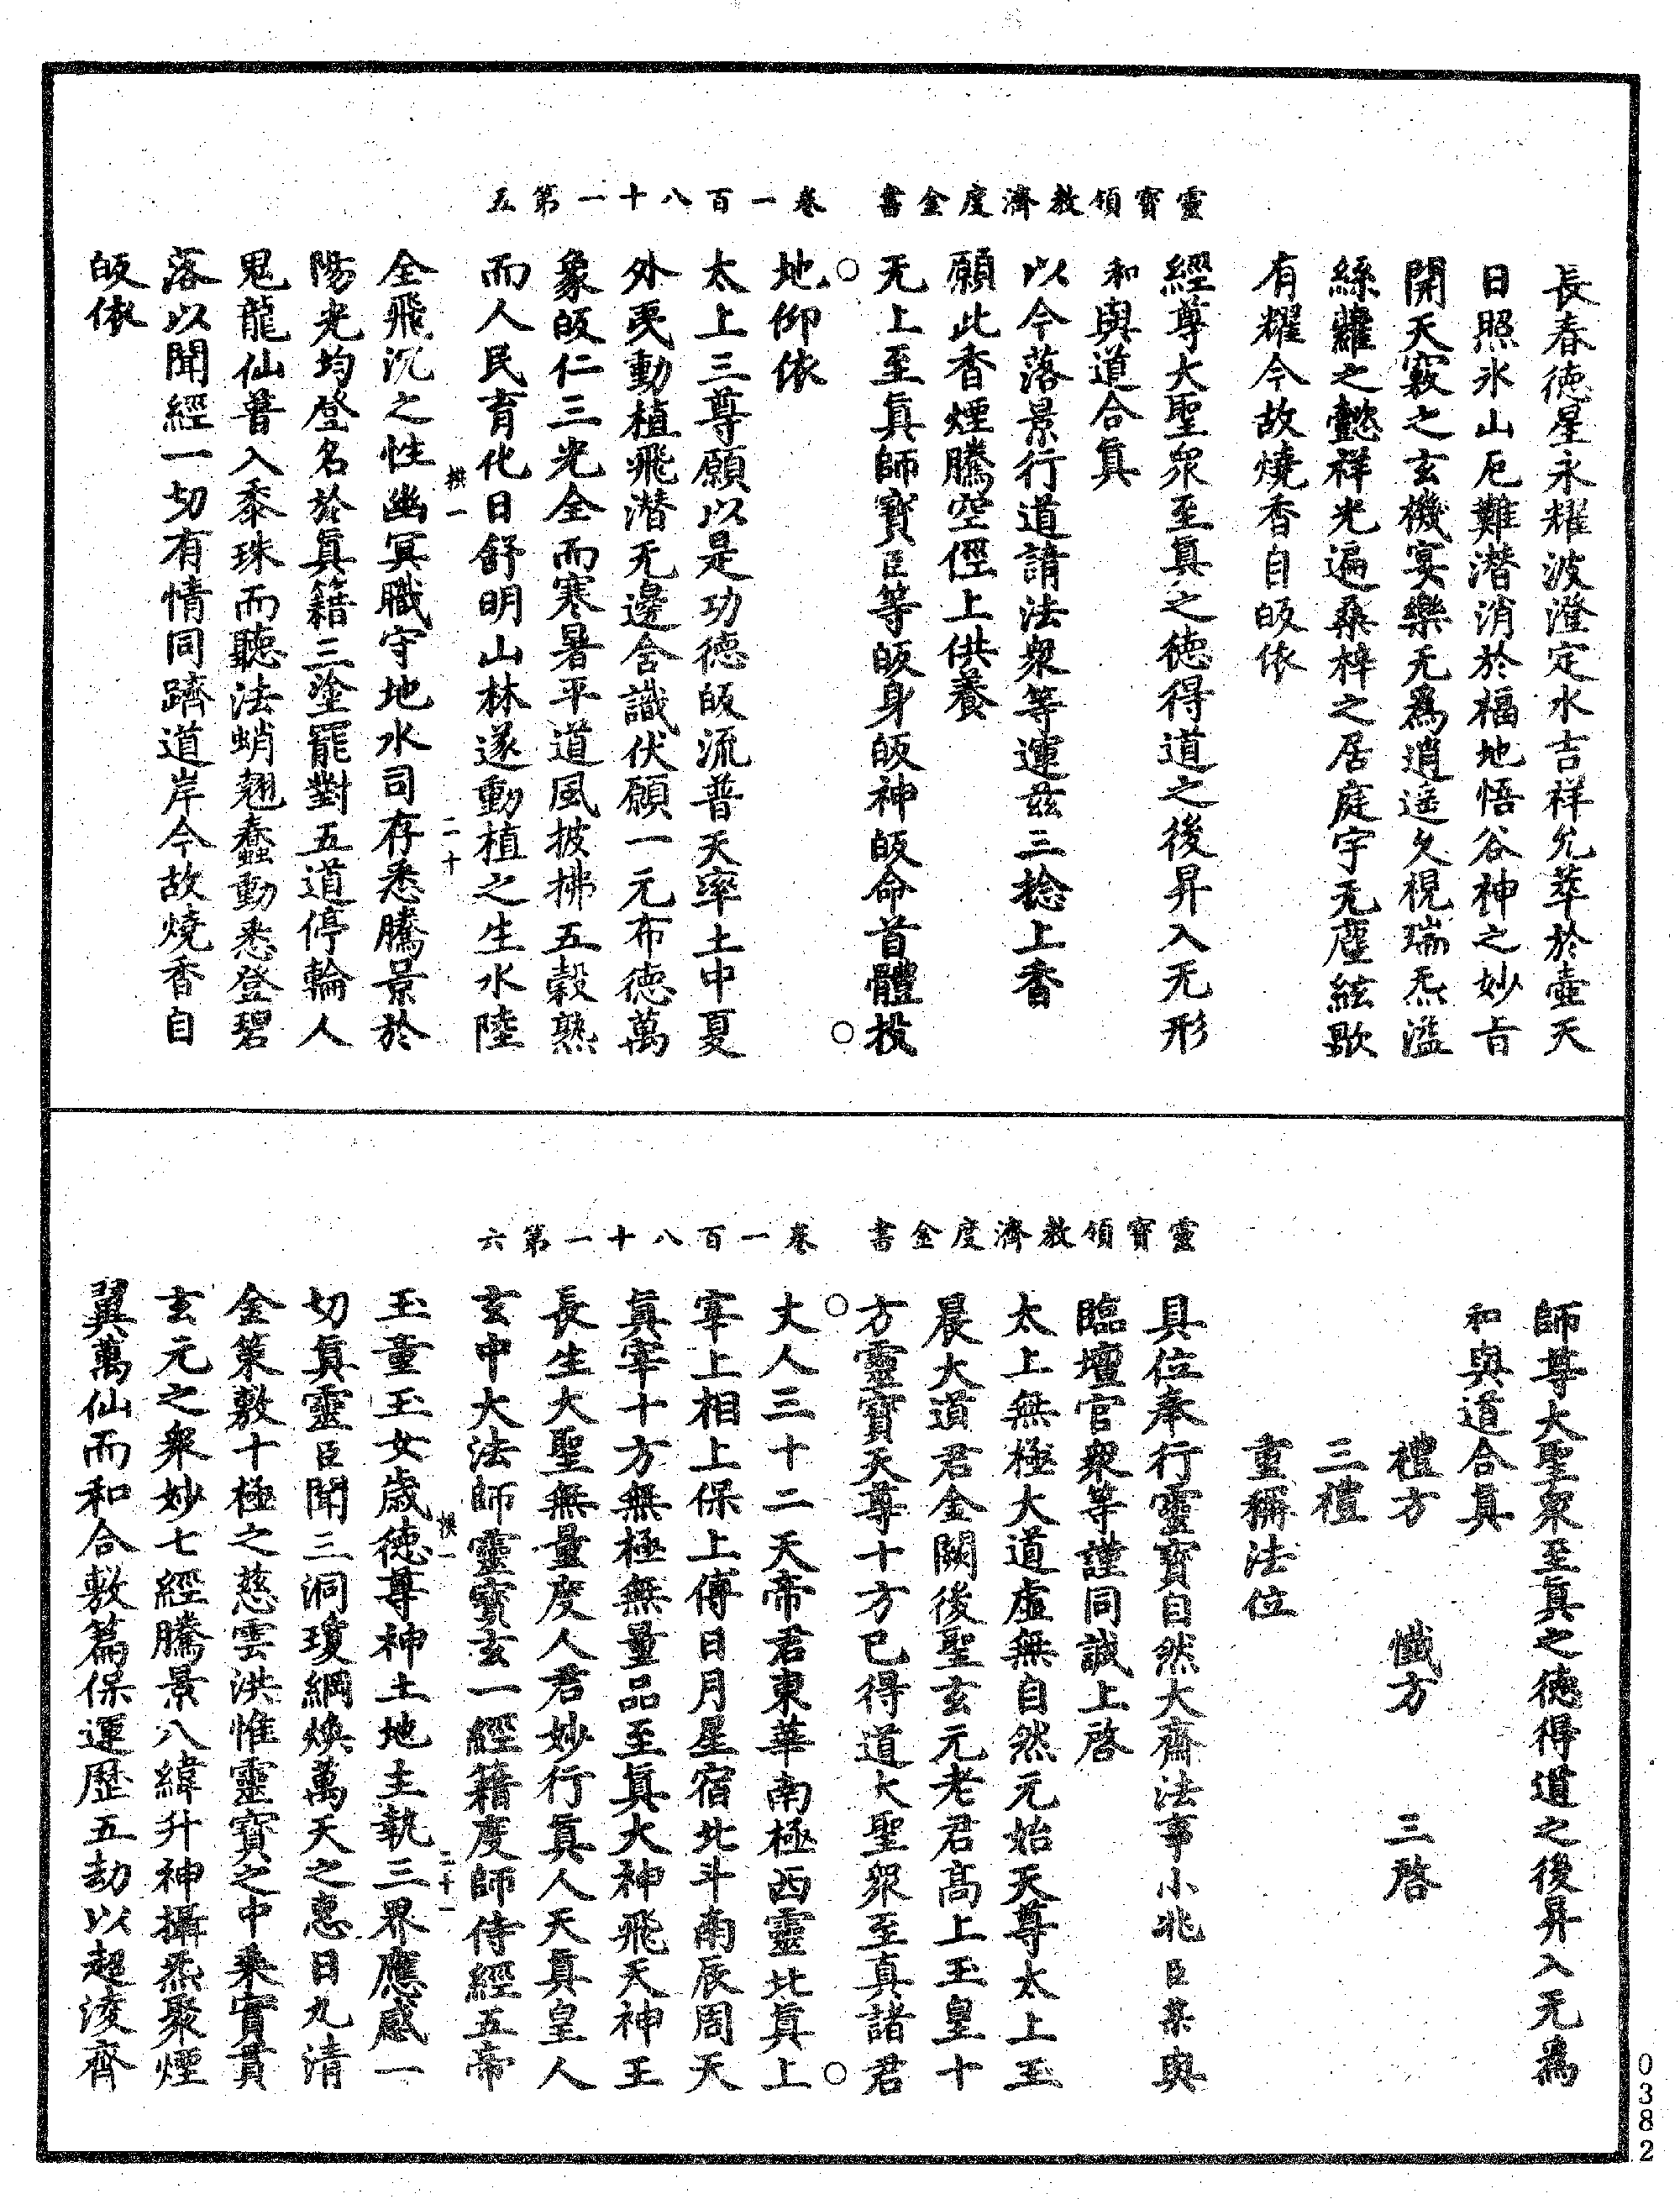 靈寶領教濟度金書　卷一百八十一第五
長春德星永耀波澄定水吉祥允萃於壺天
日照氷山厄難潛消於福地悟谷神之妙旨
開天竅之玄機宴樂无爲逍遥久視瑞炁溢
絲蘿之懿祥光遍桑梓之居庭宇无塵絃歌
有耀今故燒香自皈依
經尊大聖衆至真之德得道之後昇入无形
和與道合真
以今落景行道請法衆等運兹三捻上香
願此香煙騰空徑上供養
无上至真師寶臣等皈身皈神皈命首體投
地仰依
太上三尊願以是功德皈流普天率土中夏
外夷動植飛潛无邊含識伏願一元布德萬
象皈仁三光全而寒暑平道風披拂五穀熟
而人民育化日舒明山林遂動植之生水陸
棋一　二十
全飛沉之性幽冥職守地水司存悉騰景於
陽光均登名於真籍三塗罷對五道停輪人
鬼龍仙普入黍珠而聽法蛸翹蠢動悉登碧
落以聞經一切有情同躋道岸今故燒香自
皈依
靈寶領教濟度金書　卷一百八十一第六
師尊大聖衆至真之德得道之後昇入无爲
和與道合真
禮方　懺方　三啓
三禮
重稱法位
具位奉行靈寶自然大齋法事小兆臣某與
臨壇官衆等謹同誠上啓
太上無極大道虛無自然元始天尊太上玉
晨大道君金闕後聖玄元老君高上玉皇十
方靈寶天尊十方已得道大聖衆至真諸君
丈人三十二天帝君東華南極西靈北真上
宰上相上保上傅日月星宿北斗南辰周天
真宰十方無極無量品至真大神飛天神王
長生大聖無量度人君妙行真人天真皇人
玄中大法師靈寶玄一經籍度師侍經五帝
棋一　二十一
玉童玉女歲德尊神土地主執三界應感一
切真靈臣聞三洞瓊綱煥萬天之惠日九清
金策敷十極之慈雲洪惟靈寶之中乘實貫
玄元之衆妙七經騰景八緯升神攝炁聚煙
翼萬仙而和合敷篇保運歷五劫以超淩齊
0382